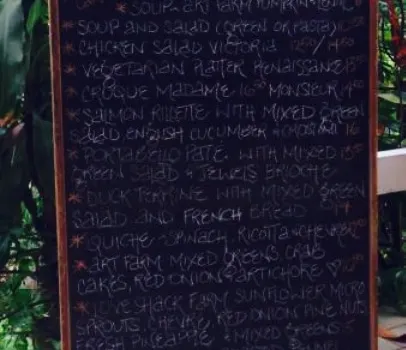 * SOUP - ART FARM PUMPKIN
SOUP AND SALAD (GREEN OR PASTA)
* CHICKEN SALAD VICTORIA
* VEGETARIAN PLATTER RENAISSANCE
* CROQUE MADAME MONSIEUR
* SALMON RILLETTE WITH MIXED GREEN
SALAD ENGLISH CUCUMBER
* PORTABELLO PATE WITH MIXED
GREEN SALAD & JEWELS BRIOCHE
* DUCK TERRINE WITH MIXED GREEN
SALAD AND FRENCH BREAD *
* QUICHE - SPINACH, RICOTTA
* ART FARM MIXED GREENS, CRAB
CAKES, RED ONION & ARTICHOKE
* LOVESHACK FARM SUNFLOWER MICRO
SPROUTS, CHEVRE, RED ONION PINE NUTS
FRESH PINEAPPLE & MIXED GREENS